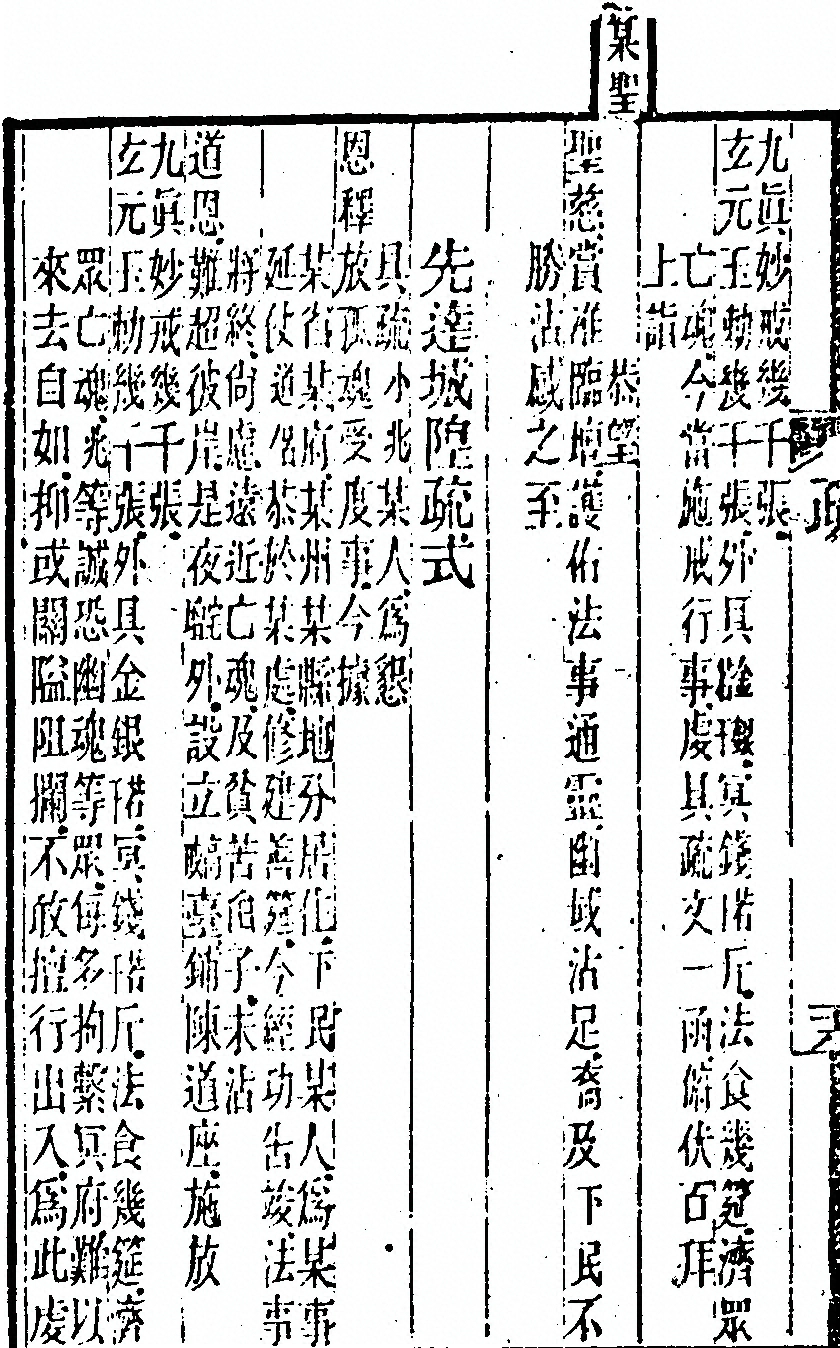 九眞妙戒幾千張
玄元玉勅幾千張外具冥錢陌斤法食幾筵濟眾
亡魂今當施戒行事虔具疏文一函俯伏百拜
上詣
某聖 恭望
聖慈賞准臨壇護佑法事通靈幽域沾足裔及下民不
勝沾感之至
先達城隍疏式
具疏小兆某人爲懇
恩釋放孤魂受度事今據
某省某府某州某縣地分居住下民某人爲某事
延仗道侶恭於某處修建善筵今經功告竣法事
將終尙慮遠近亡魂及貧苦子未沾
道恩難超彼岸是夜壇外設立臺鋪陳道座施放
九眞妙戒幾千張
玄元玉勅幾千張外具金銀陌冥錢陌斤法食幾筵濟
眾亡魂兆等誠恐幽魂等眾每多拘繫冥府難以
來去自如抑或關隘阻攔不敢擅行出入爲此虔